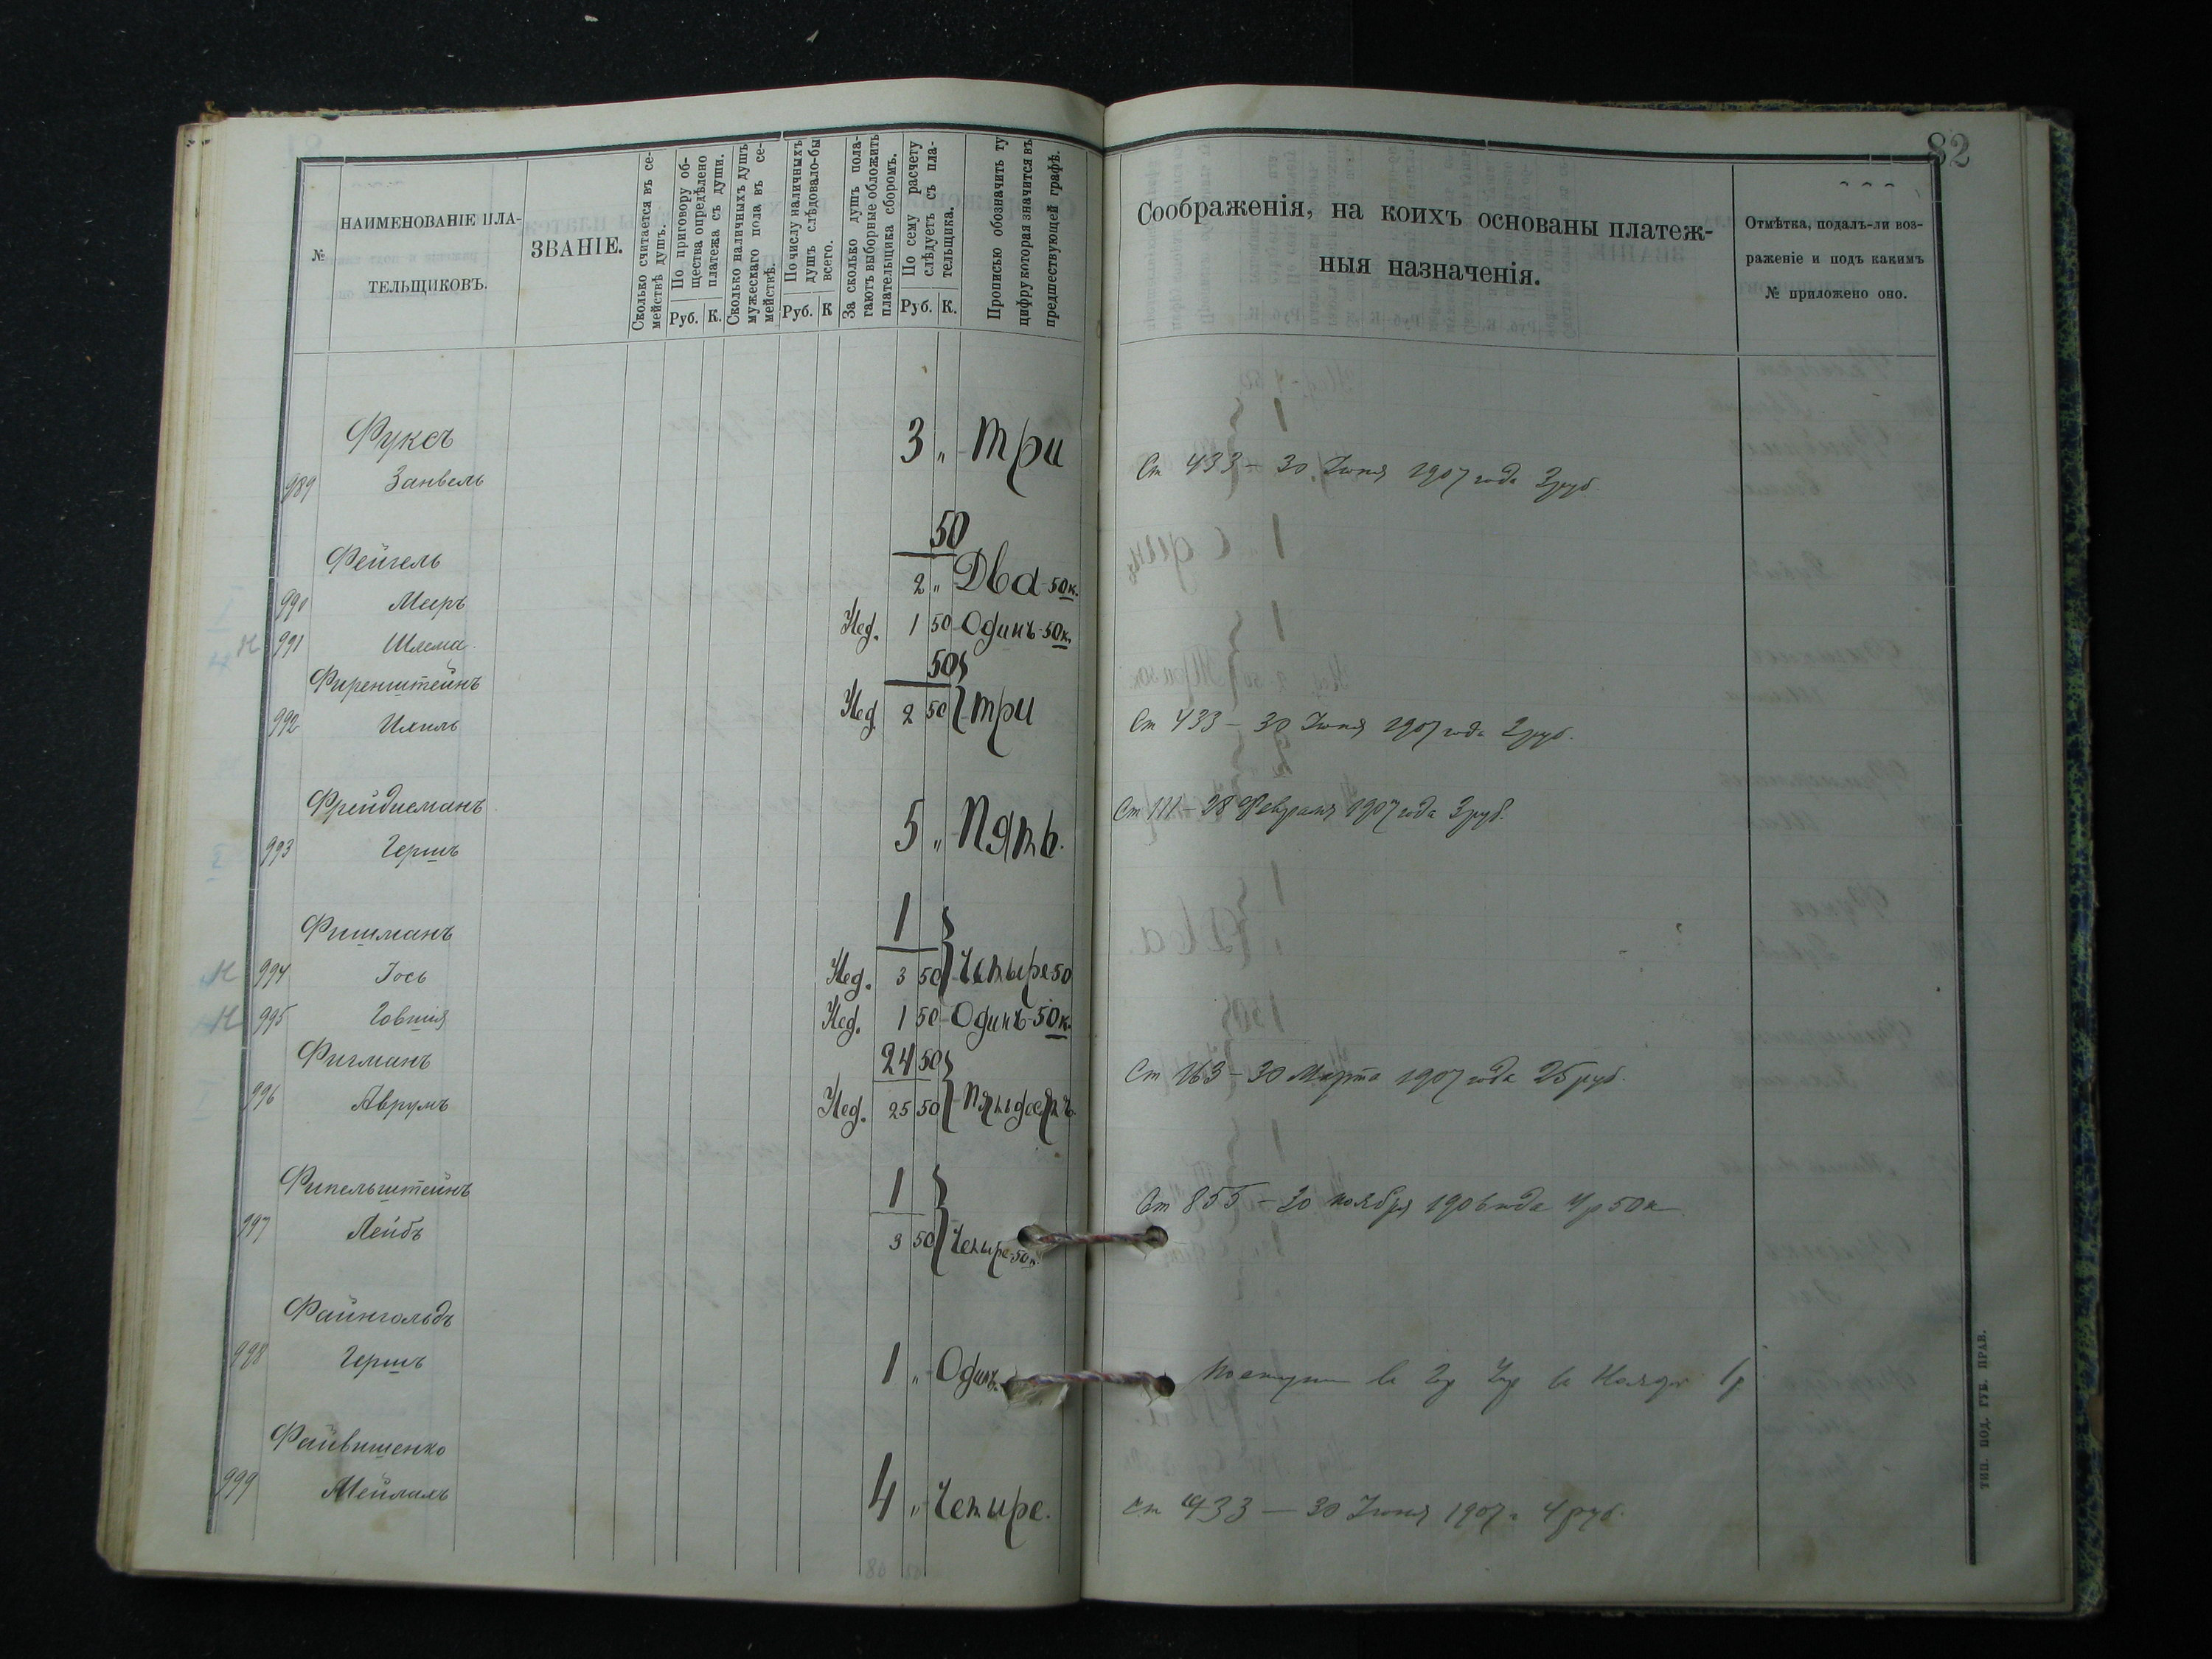 82
№
НАИМЕНОВАНІЕ ПЛА-
ТЕЛЬЩИКОВЪ.
ЗВАНІЕ.
Сколько считается въ се-
мействѣ душъ.
По приговору об-
щества опредѣлено
платежа съ души.
Руб. К.
Сколько наличныхъ душъ
мужескаго пола въ се-
мействѣ.
По числу наличныхъ
душъ слѣдовало-бы
всего.
Руб. К
За сколько душъ пола-
гаютъ выборные обложить
плательщика сборомъ.
По сему расчету
слѣдуетъ съ пла-
тельщика.
Руб. К.
Прописью обозначить ту
цифру которая значится въ
предшествующей графѣ.
Соображенія, на коихъ основаны платеж-
ныя назначенія.
Отмѣтка, подалъ-ли воз-
раженіе и подъ какимъ
№ приложено оно.
Фуксъ
989 Занвель 3 " Три Ст 433 — 30 Июня 1907 года 3 руб.
50
Фейгель
990 Мееръ 2 " Два 50 к.
Н 991 Шлема Нед. 1 50 Одинъ 50 к.
50
Фиренштейнъ
992 Ихиль Нед. 2 50 Три Ст 433 — 30 Июня 1907 года 2 руб.
Фрейдисманъ
993 Гершъ 5 " Пять. Ст 111 — 28 Февраля 1907 года 3 руб.
1
Фишманъ
Н 994 Іось Нед. 3 50 Четыре 50
Н 995 Говшия Нед. 1 50 Одинъ 50 к.
Фигманъ 24 50
996 Аврумъ Нед. 25 50 Пятьдесятъ Ст 163 — 30 Марта 1907 года 25 руб.
1
Фипельштейнъ
997 Лейбъ 3 50 Четыре 50 к. Ст 855 — 20 ноября 1906 года 4 р 50 к
Файнгольдъ
998 Гершъ 1 " Одинъ
Файвишенко
999 Мейлахъ 4 " Четыре. Ст 433 — 30 Июня 1907 г 4 руб.
ТИП. ПОД. ГУБ. ПРАВ.